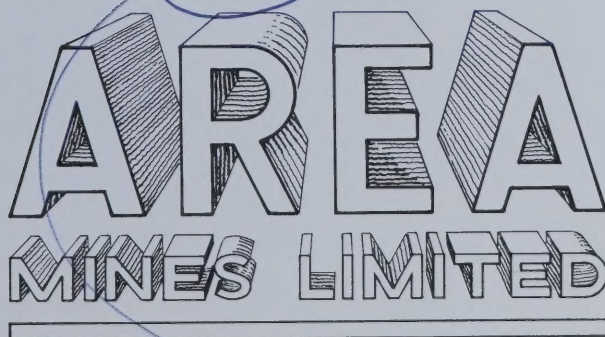 AREA
MINES LIMITED